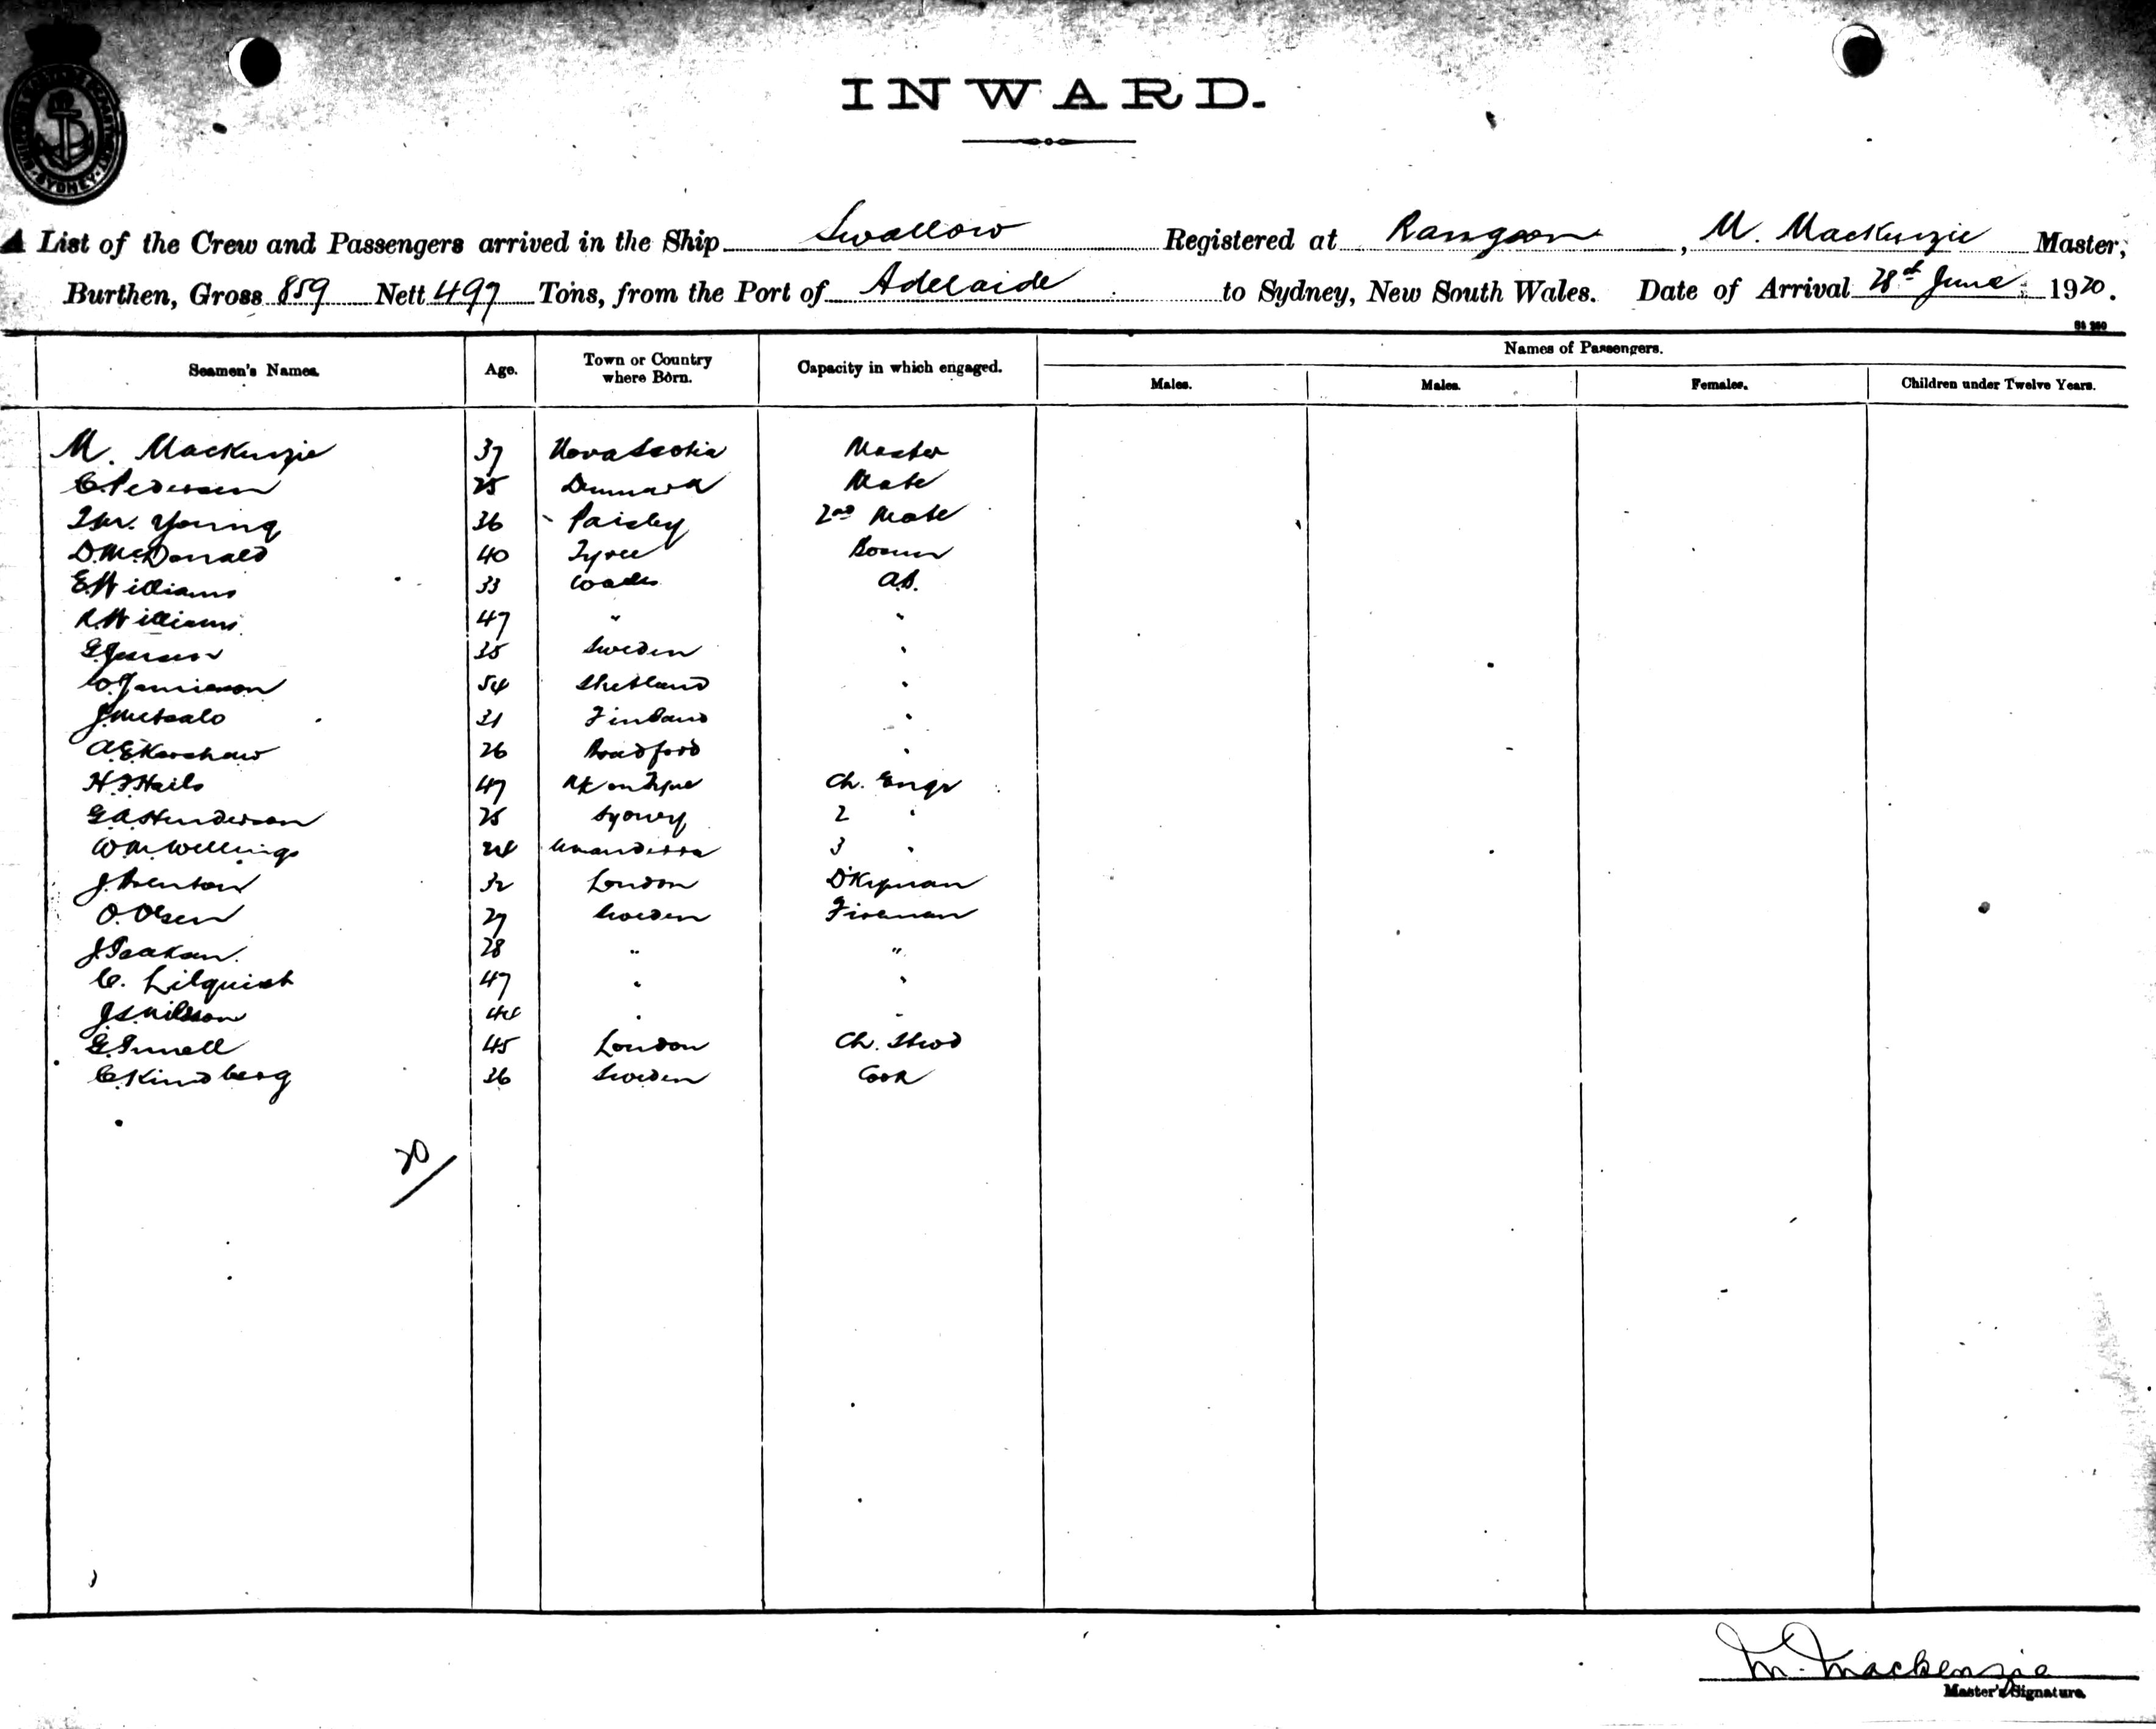 INWARD.
SYDNEY
A List of the Crew and Passengers arrived in the Ship Swallow Registered at Rangoon, M. MacKenzie Master,
Burthen, Gross 859 Nett 497 Tons, from the Port of Adelaide to Sydney, New South Wales. Date of Arrival 28th June 1920.
Names of Passengers.
Seamen's Names. Age. Town or Country where Born. Capacity in which engaged. Males. Males. Females. Children under Twelve Years.
M. MacKenzie 37 Nova Scotia Master
C. Pedersen 25 Denmark Mate
Young 36 Paisley 2nd Mate
D. McDonald 40 Tyree Bosun
E. Williams 33 Wales A.B.
R. Williams 47 " "
G. Jensen 35 Sweden "
C. Jamieson 54 Shetland "
J. Metsalo 31 Finland "
A.E. Kershaw 26 Bradford "
H. F. Hails 47 on Tyne Ch. Engr
G.A. Henderson 25 Sydney 2 "
W.M. Wellings 24 Unanderra 3 "
J. Brenton 32 London D'Kyman
O. Olsen 27 Sweden Fireman
J. Isaksen 28 " "
C. Lilquist 47 " "
J.S. Nilsson 44 " "
G. Tunell 45 London Ch. Stwd
C. Kindberg 36 Sweden Cook
20
M. Mackenzie
Master's Signature